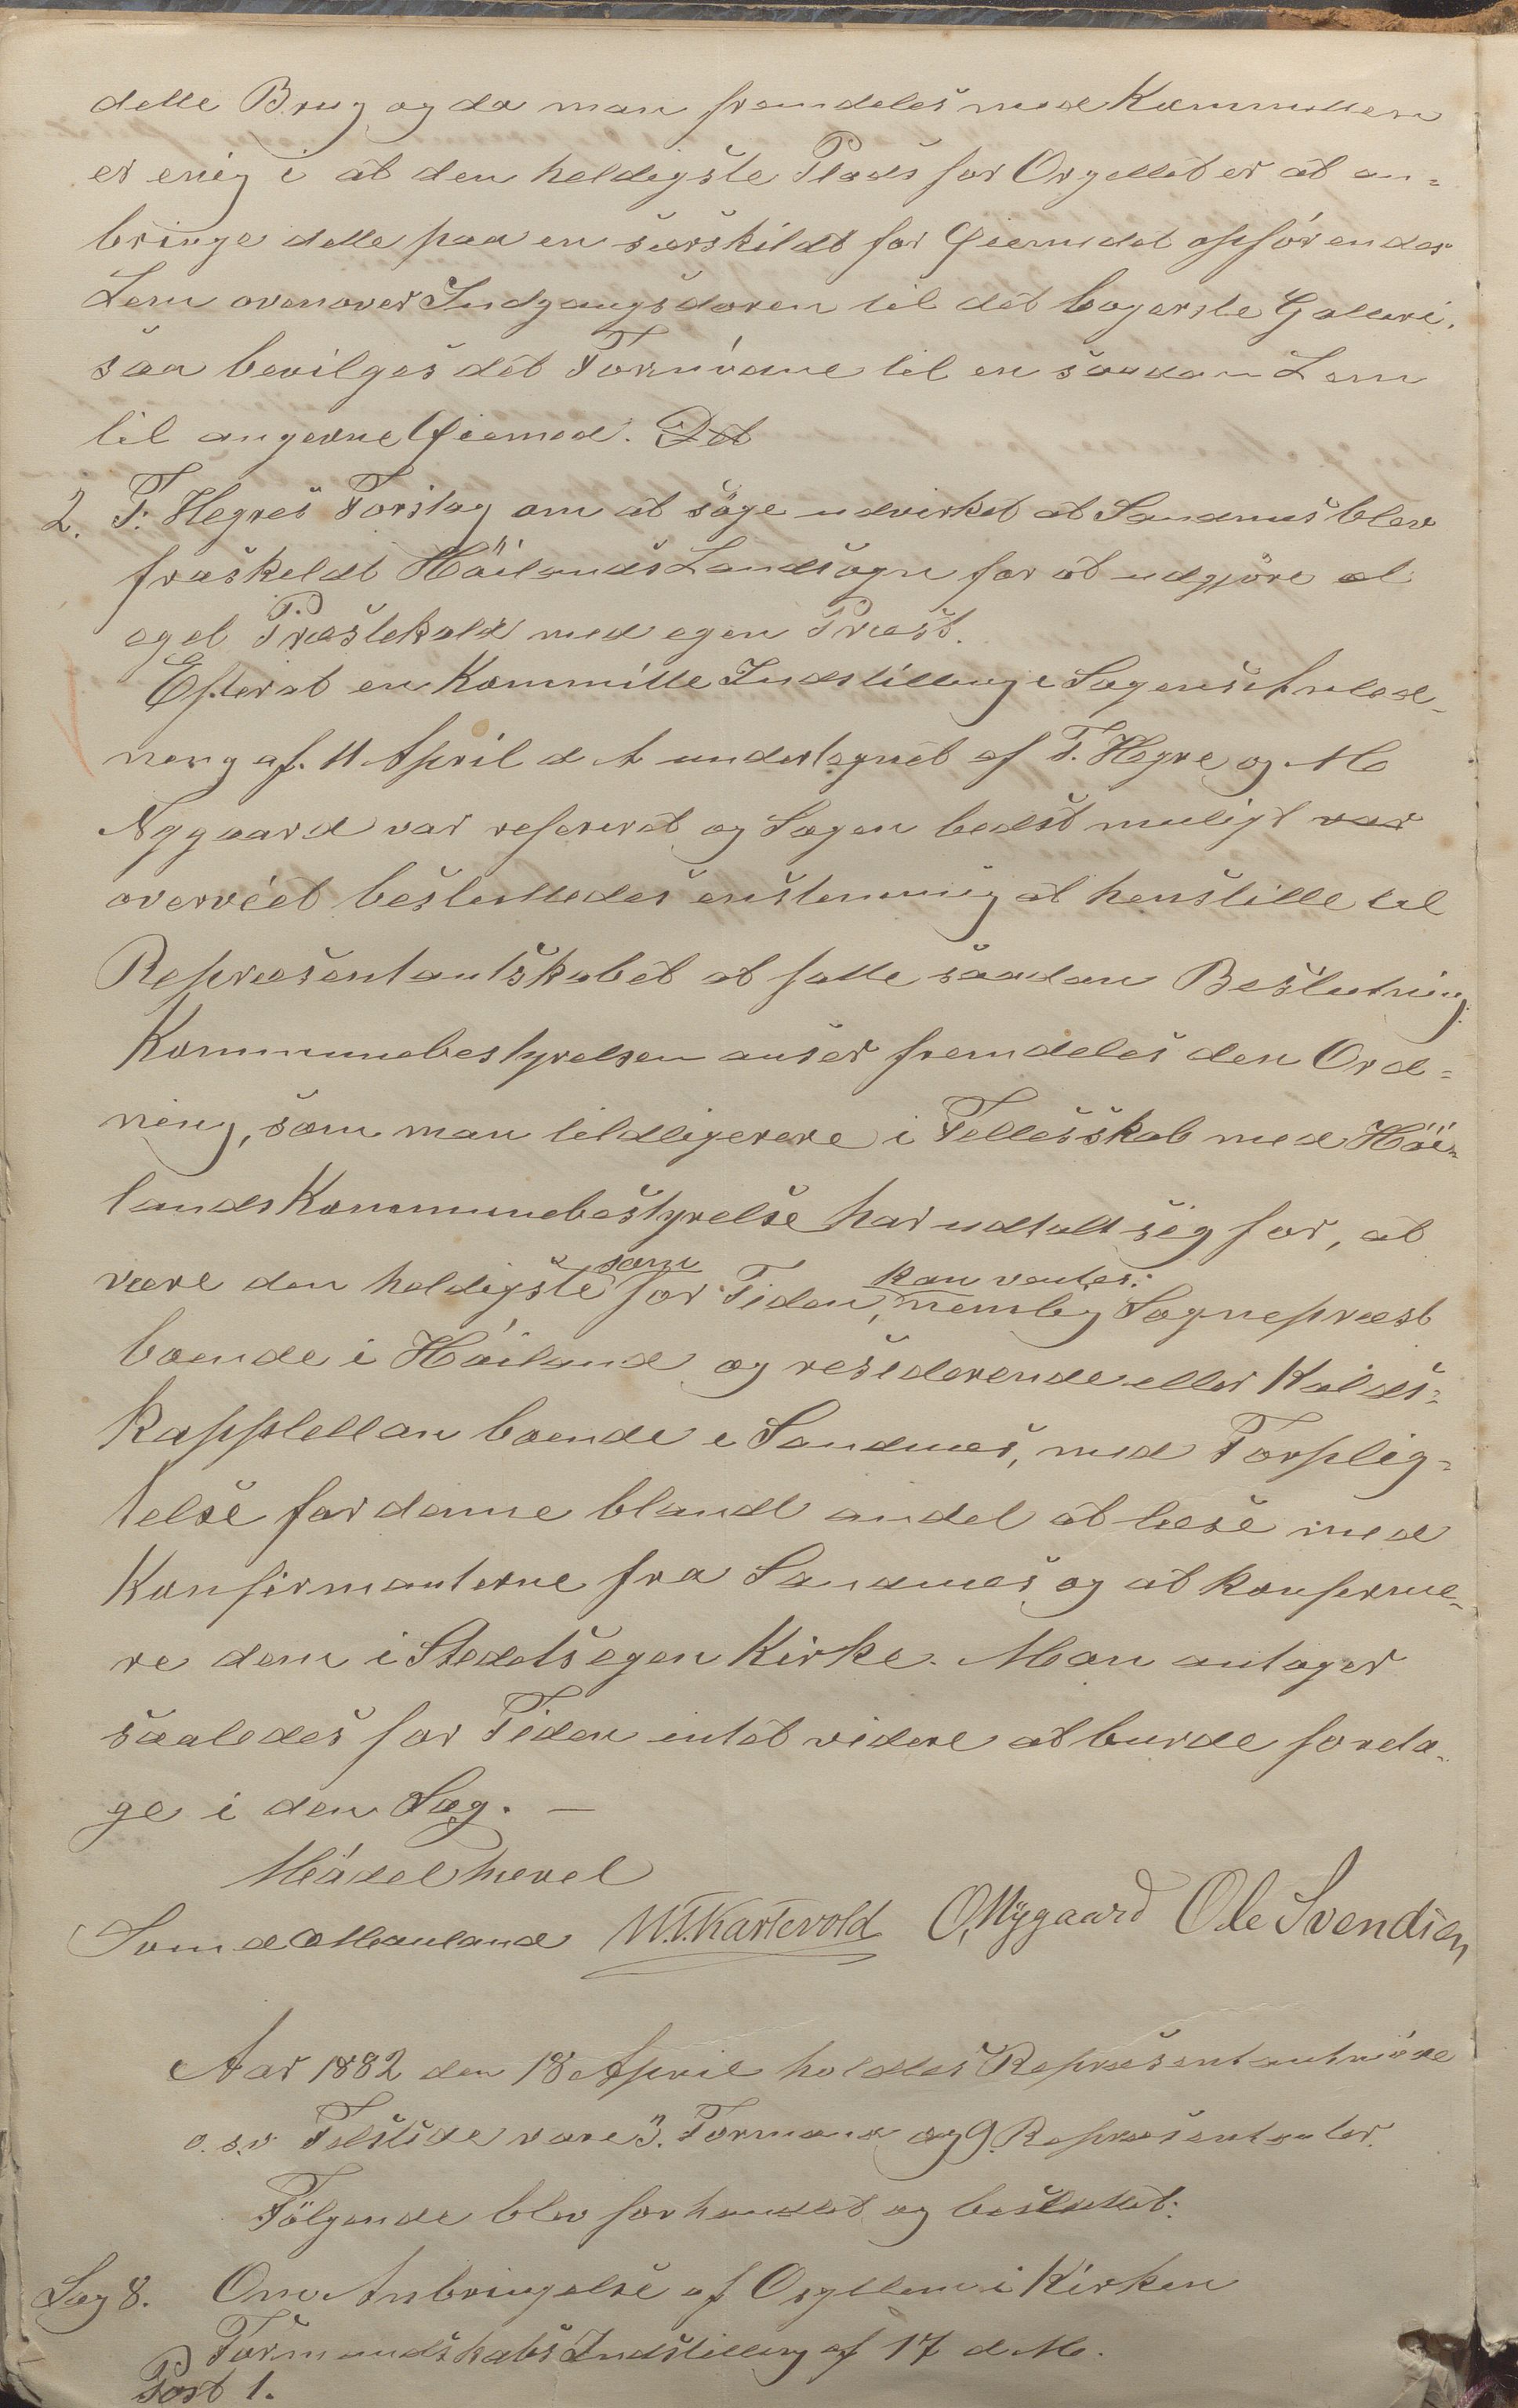 dette Brug og da man fremdeles med Kommitteen
er enig i at den heldigste Plads for Orgellet er at an-
bringe dette paa en særskildt for Øiemedet opförendes
Lem ovenover Indgangsdoren til det bagerste Galleri.
saa bevilges det Fornödne til en saadan Lem
til angevne Øiemed. Det
2. T. Hegres Forslag om at söge udvirket at Sandnes blev
fraskeldt Höilands Landsogn for at udgjöre et
eget Præstekald med egen Præst.
Efterat en Kommitte Indstilling i Sagens Anled-
ning af. 11 April d A undertegnet af T. Hegre og M
Nygaard var refereret og Sagen bedst muligt var
overveiet besluttedes enstemmig at henstille til
Repræsentantskabet at fatte saadan Beslutning:
Kommunebestyrelsen anser fremdeles den Ord-
ning, som man tildligerere i Fellesskab med Höi-
lands Kommunebestyrelse har udtalt sig for, at
være den heldigste som for Tiden kan ventes: nemlig Sognepræst
boende i Höiland og residerende eller Kalds-
kapplellan boende i Sandnes, med Forplig-
telse for denne blandt andet at læse med
Konfirmanterne fra Sandnes og at konfirme-
re dem i Stedets egen Kirke. Man antager
saaledes for Tiden intet videre at burde foreta-
ge i den Sag. —
Mödet hævet
Svend Aa Hauland W.T. Kartevold O, Nÿgaard Ole Svendsen
Aar 1882 den 18 April holdtes Repræsentantmöde
o.s.v. Tilstede vare 3. Formænd og 9. Repræsentanter.
Fölgende blev forhandlet og besluttet:
Sag 8. Om Anbringelse af Orgllem i Kirken
Formandskabs Indstilling af 17 d. M.
Post 1.